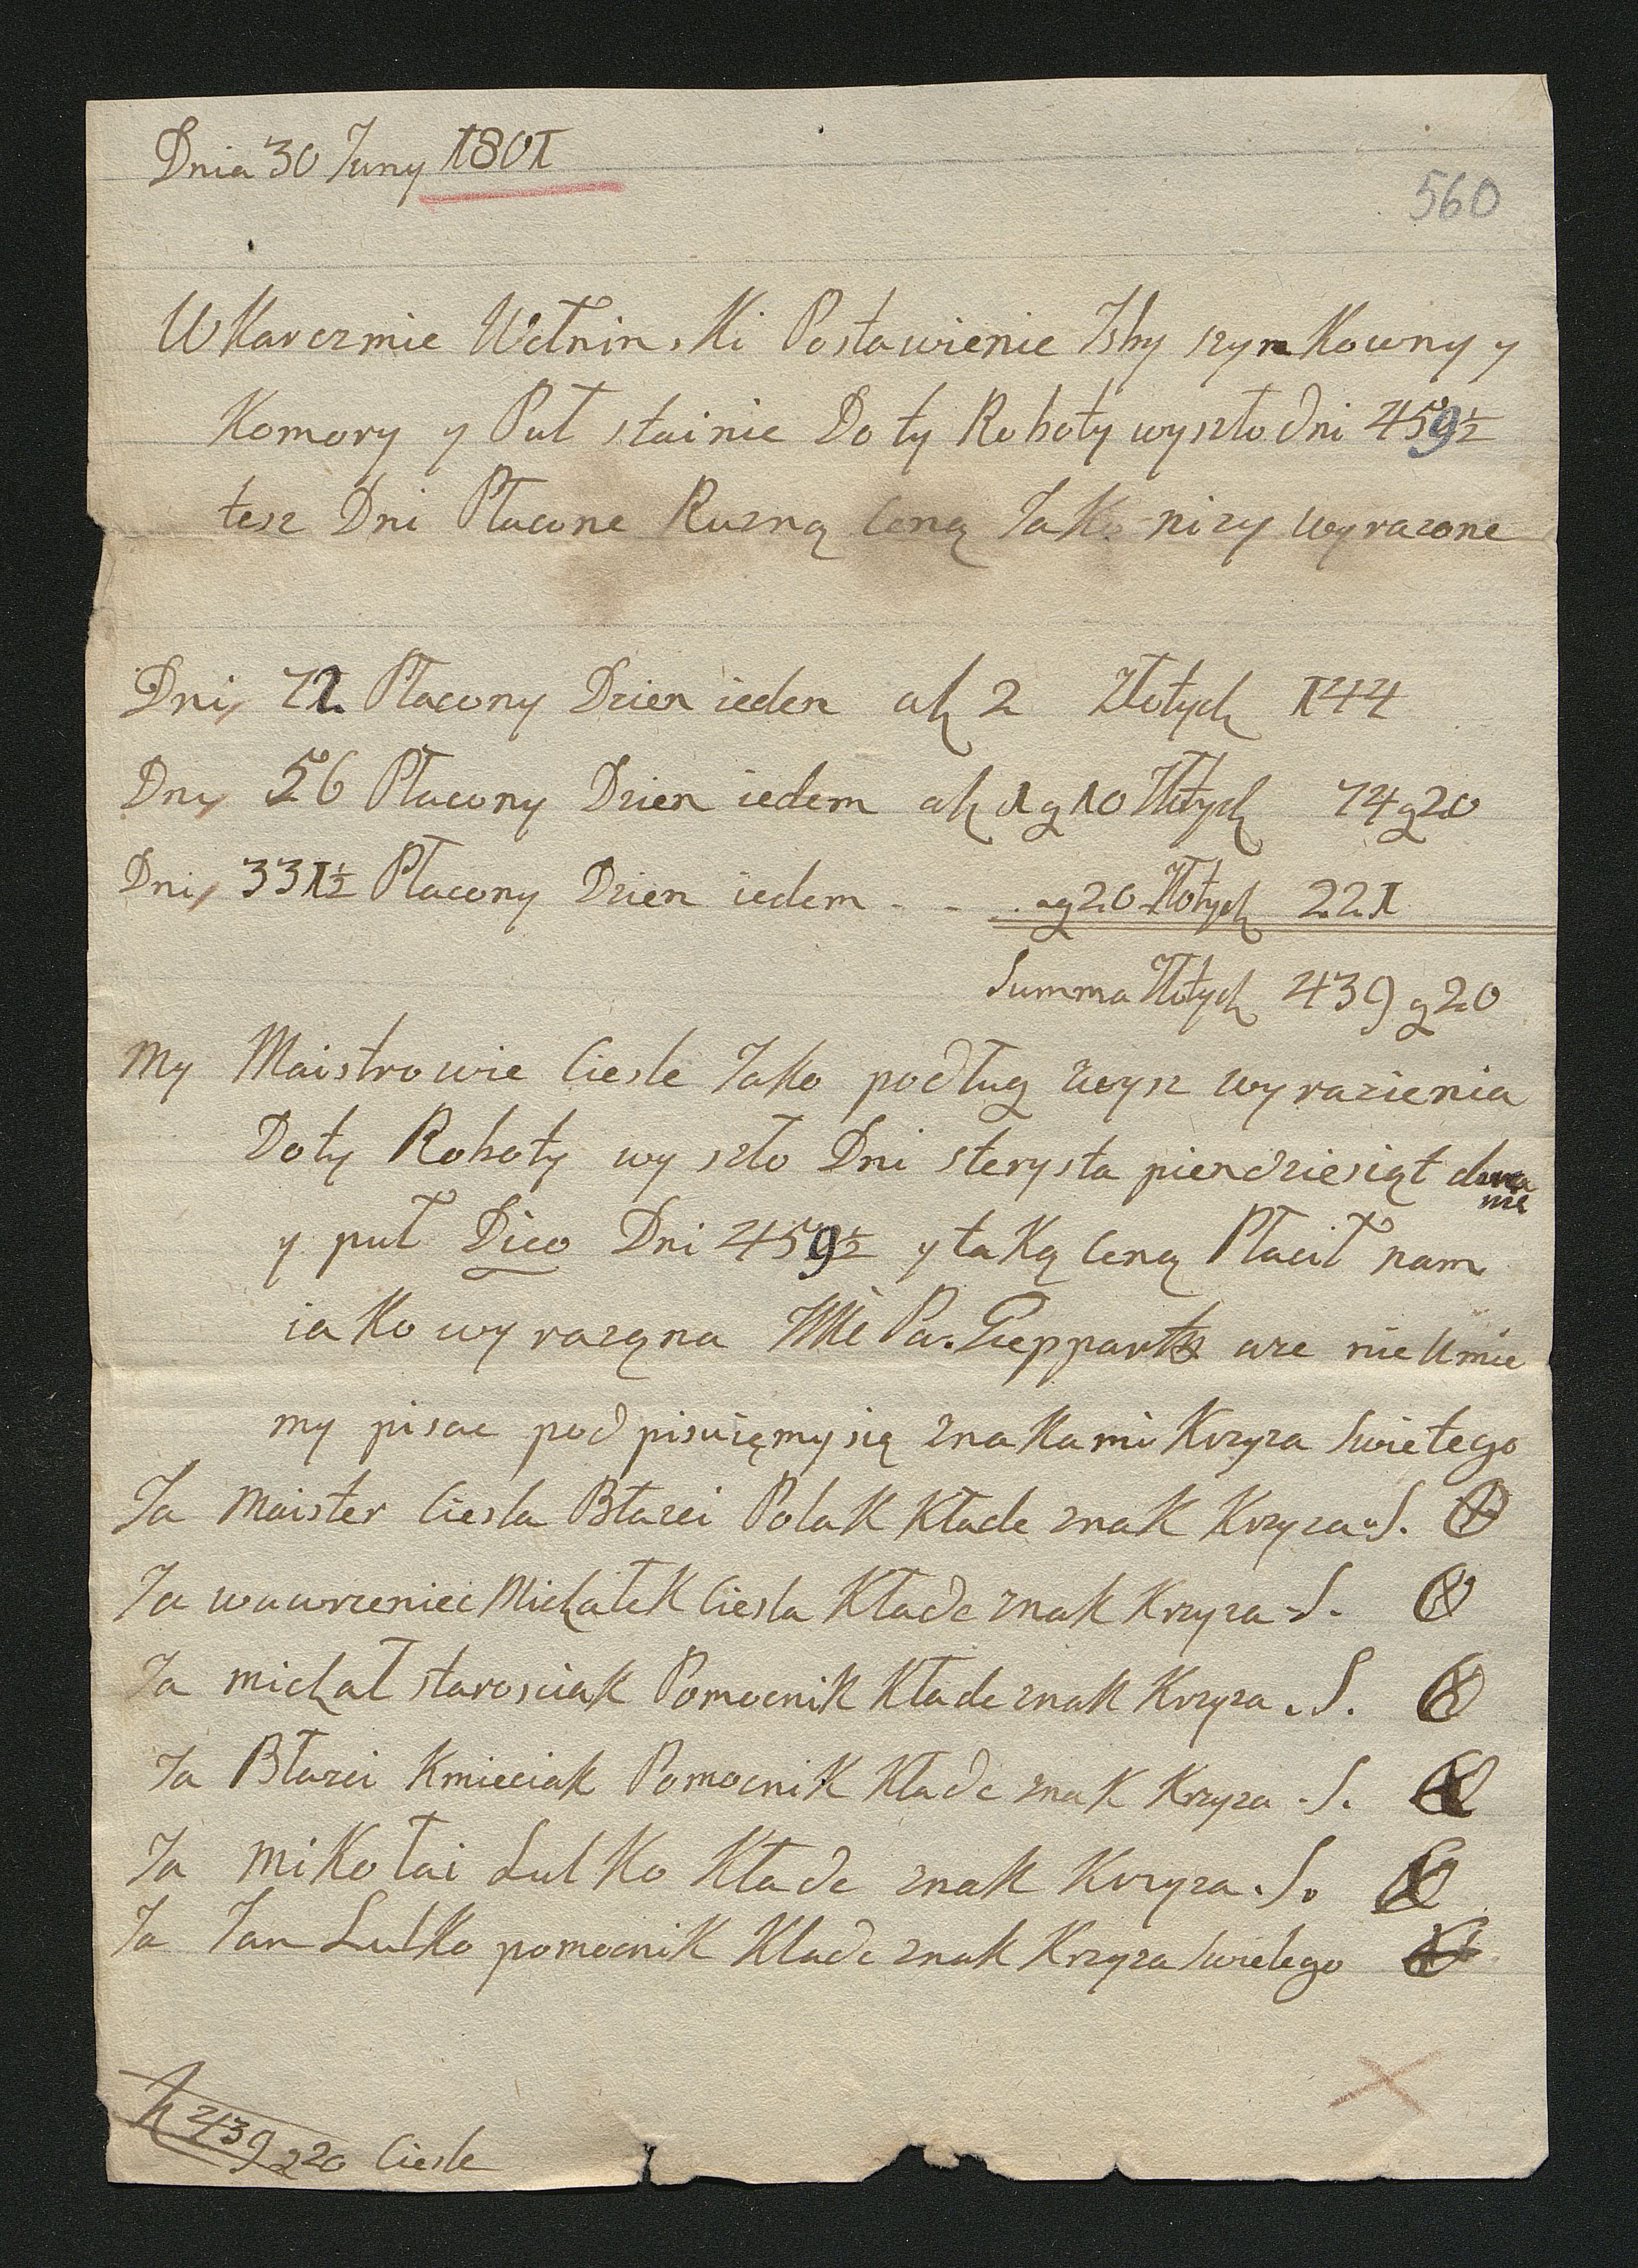 Dnia 30 Juny 1801
560
W Karczmie Wełninski Postawienie Isby szynkowny y
Komory y Puł stainie Do ty Roboty wyszło dni 459½
tesz Dni Płacone Ruzną Ceną Jako nizy wyrazone
Dni 72 Płacony Dzien ieden ah 2 Złotych 144
Dny 56 Płacony Dzien iedem ah 1 g 10 Złotych 74 g 20
Dni 331½ Płacony Dzien iedem - - . ag 20 Złotych 221
Summa Złotych 439 g 20
My Maistrowie Ciesle Jako podług zwysz wyrazienia
Doty Roboty wyszło Dni sterysta pierdziesiąt
y puł Dico Dni 459½ y taką Ceną Płacił nam
iako wyrazęna Pa. Gieppart aze nie Umie
my pisac podpisuięmy się znakami Krzyza Swietego
Ja Maister Ciesla Błazei Polak Kłade znak Krzyza S.
Ja wawrzeniec Michałek Ciesla Kłade znak Krzyza S.
Ja michał starosciak Pomocnik Kłade znak Krzyza . S.
Ja Błazei Kmieciak Pomocnik Kłade znak Krzyza . S.
Ja Mikołai Lulko Kłade znak Krzyza . S.
Ja Jan Lulko pomocnik Klade znak Krzyza Swielego
439 g 20 Ciesle